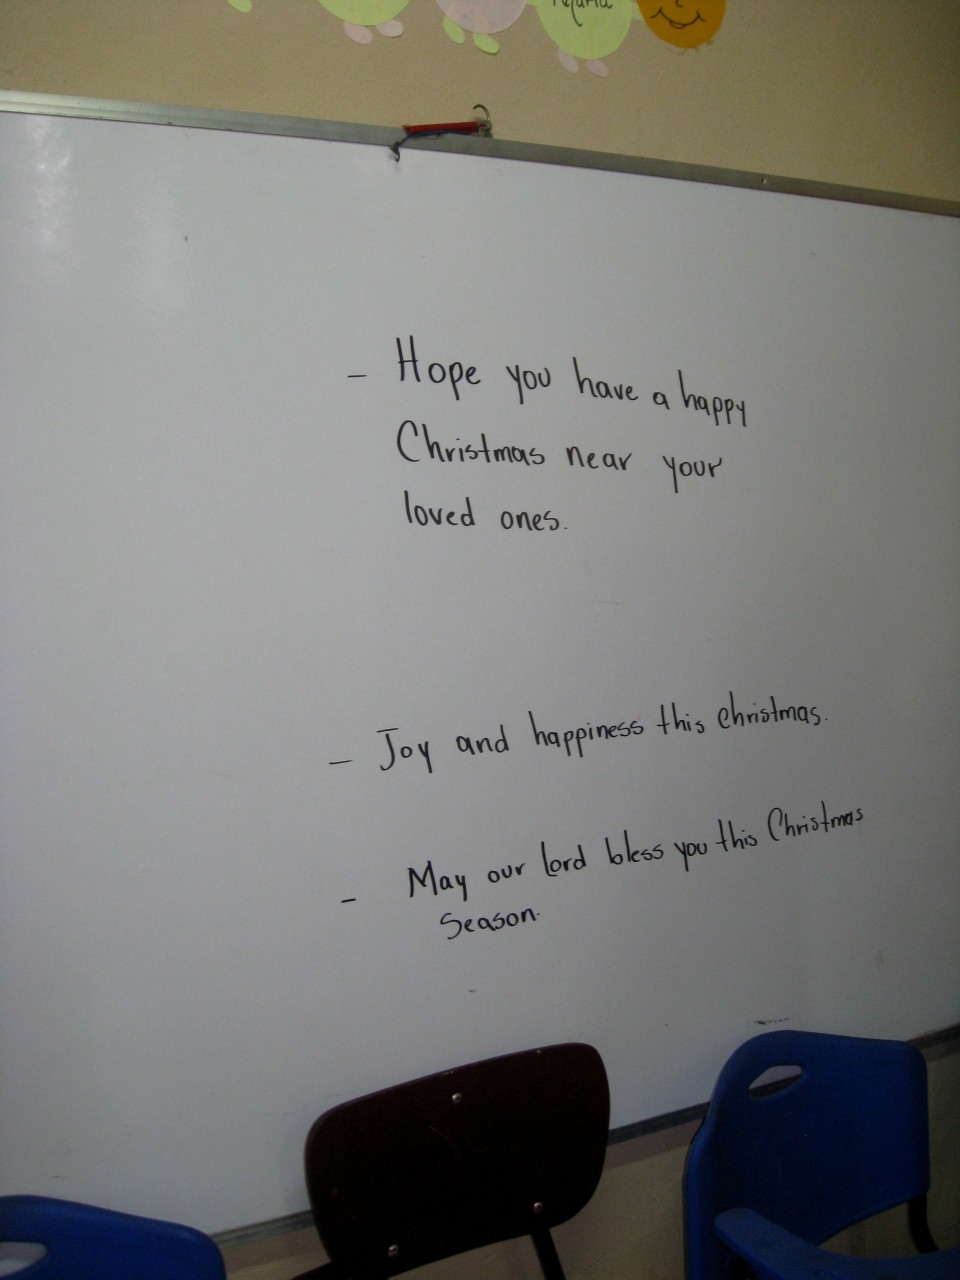 - Hope you have a happy
Christmas near your
loved ones.
- Joy and happiness this christmas.
- May our Lord bless you this Christmas
Season.